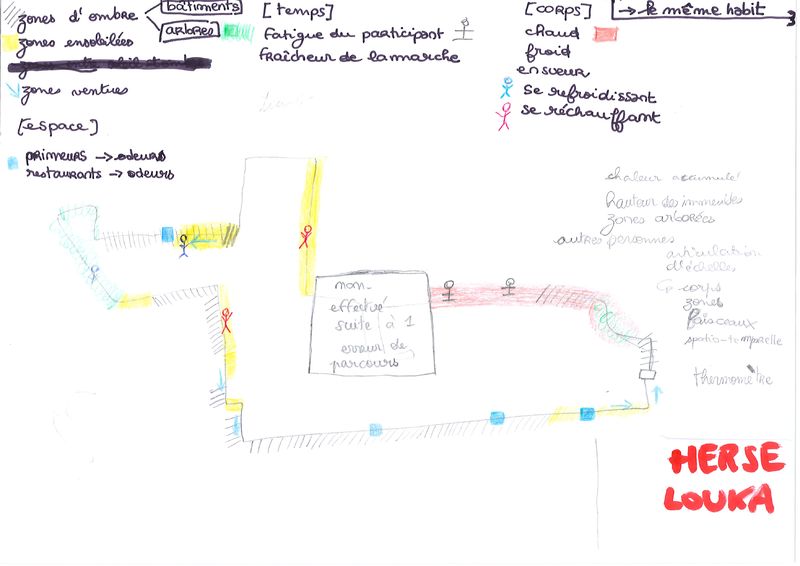 zones d'ombre
bâtiments
arbres
zones ensoleillées
zones ventues
[espace]
primeurs -> odeurs
restaurants -> odeurs
[temps]
fatigue du participant
fraîcheur de la marche
[corps]
-> le même habit
chaud
froid
en sueur
se refroidissant
se réchauffant
chaleur accumulé
hauteur des immeubles
zones arborées
autres personnes
articulation
d'échelles
corps
zones
faisceaux
spatio-temporelle
thermomètre
non-
effectué
suite à 1
erreur de
parcours
HERSE
LOUKA